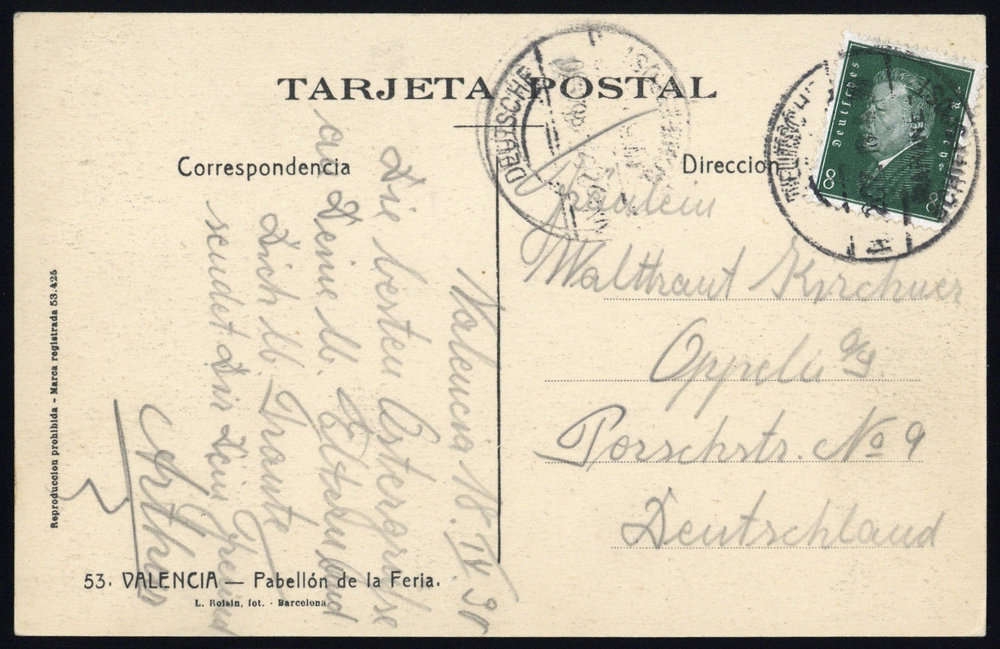 TARJETA POSTAL
Correspondencia
Dirección
Valencia 18. IV 30
Die besten Ostergrüsse
an Deine lb. Eltern und
Dich lb. Traute
sendet Dir Dein Freund
Arthur
Fräulein
Walttraut Kirchner
Oppeln O/S.
Porschstr. No 9
Deutschland
DEUTSCHE
Deutsches
8
8
53. VALENCIA — Pabellón de la Feria.
L. Roisin, fot. - Barcelona
Reproduccion prohibida - Marca registrada 53.425